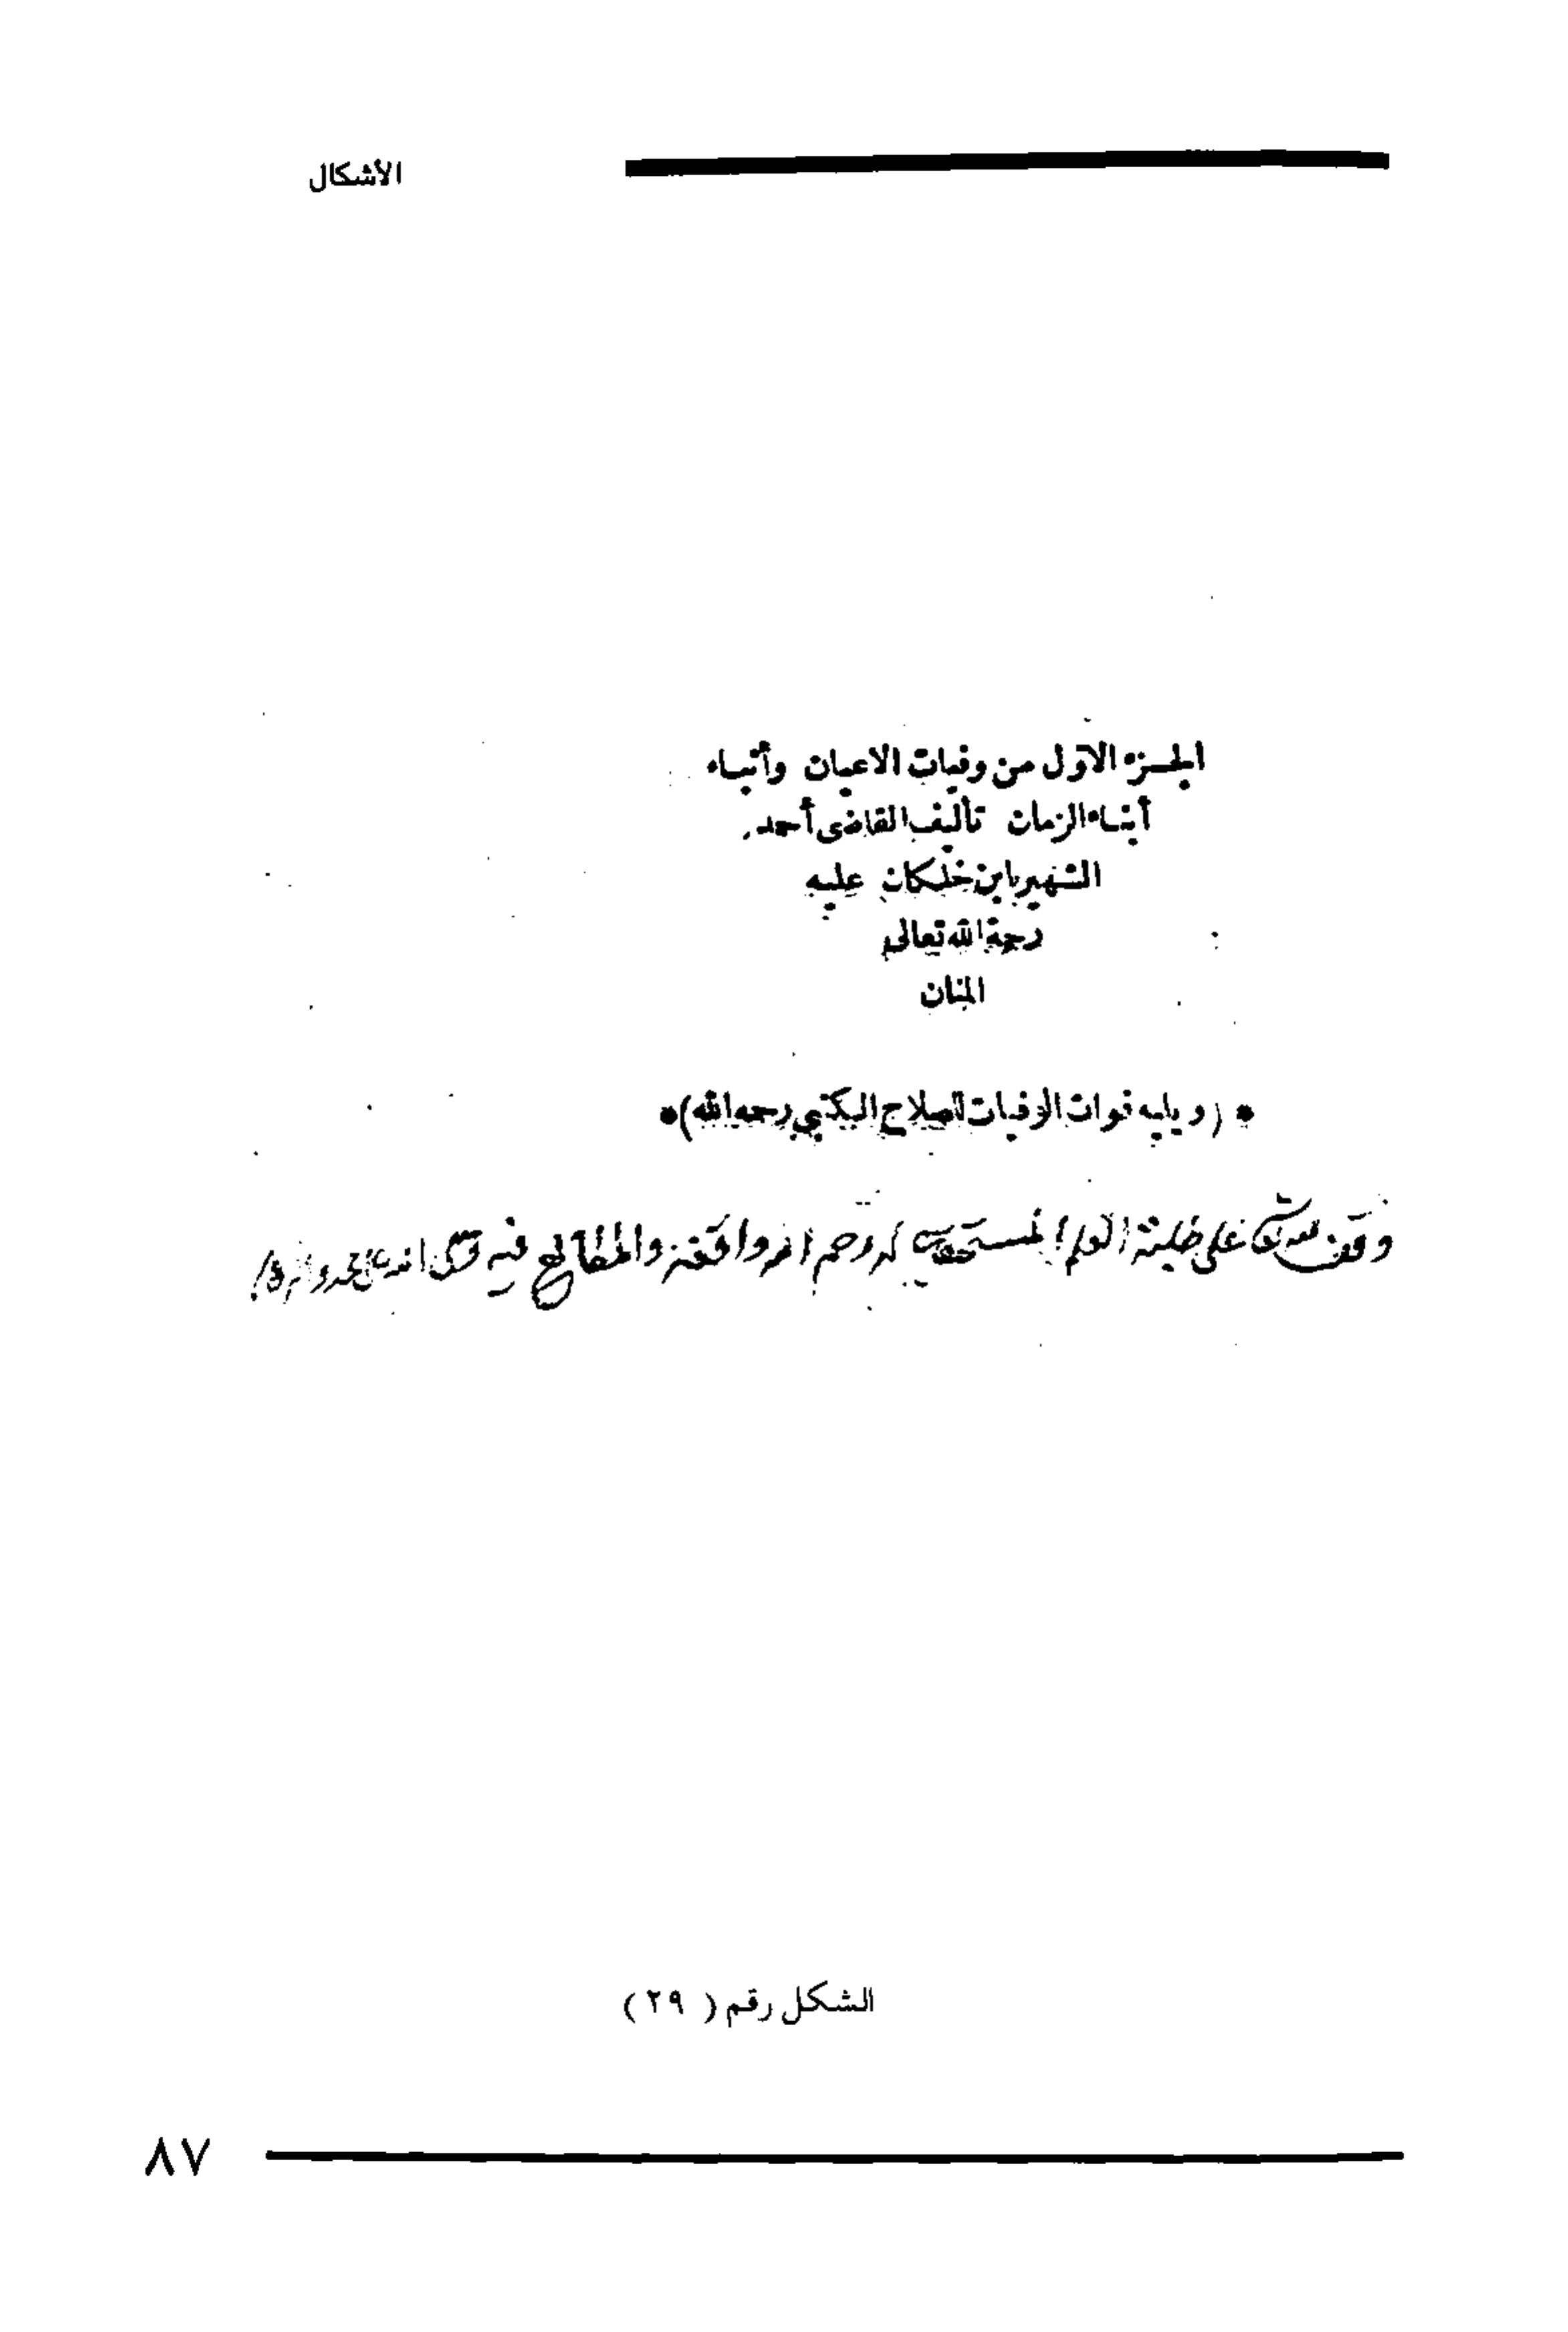 الأشكال
الجزء الاول من وفيات الاعيان وأنباء
أبناء الزمان تأليف القاضى أحمد
الشهير بابن خلكان عليه
رحمة الله تعالى
المنان
* (ويليه فوات الوفيات للصلاح الكتبي رحمه الله) *
وقف لله على طلبة العلم المستحقين رحم واقفه والمطالع فيه
الشكل رقم ( ٢٩ )
٨٧